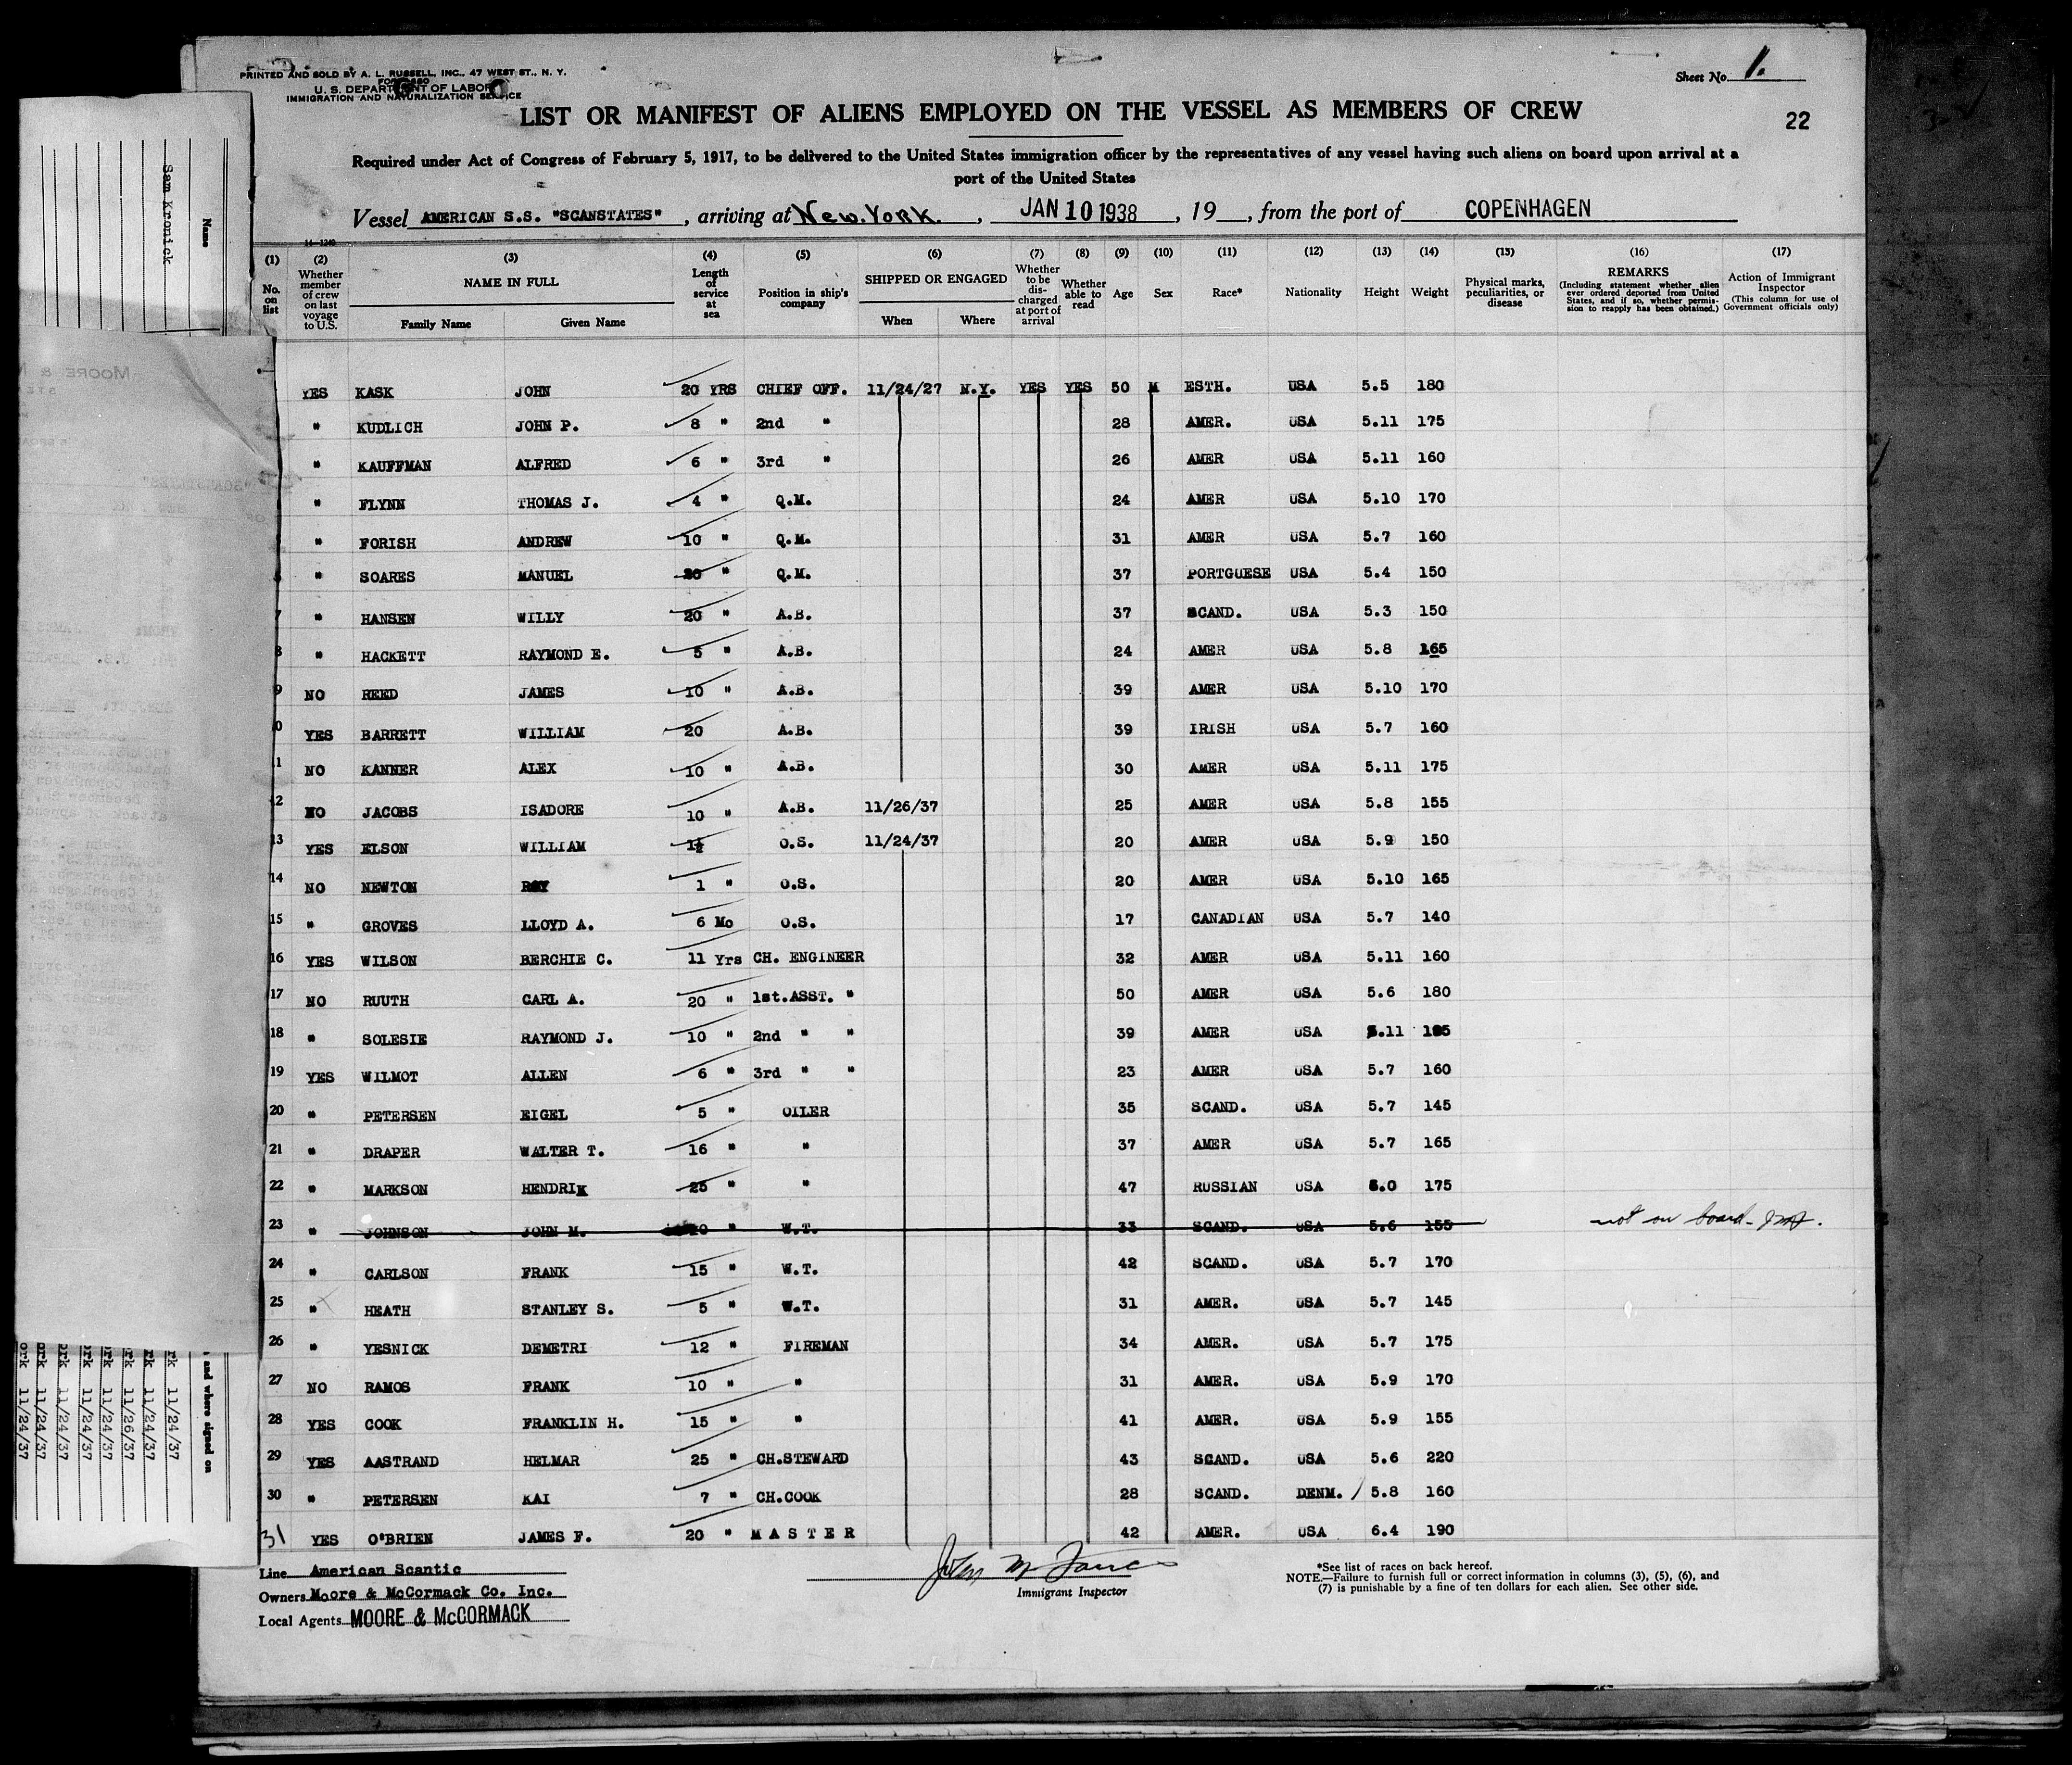 PRINTED AND SOLD BY A. L. RUSSELL, INC., 47 WEST ST., N. Y.
U. S. DEPARTMENT OF LABOR
IMMIGRATION AND NATURALIZATION SERVICE
Sheet No. 1.
LIST OR MANIFEST OF ALIENS EMPLOYED ON THE VESSEL AS MEMBERS OF CREW
22
Required under Act of Congress of February 5, 1917, to be delivered to the United States immigration officer by the representatives of any vessel having such aliens on board upon arrival at a
port of the United States
Vessel AMERICAN S.S. "SCANSTATES", arriving at New York., JAN 10 1938, 19, from the port of COPENHAGEN
14—1240
(1) (2) (3) (4) (5) (6) (7) (8) (9) (10) (11) (12) (13) (14) (15) (16) (17)
No. on list
Whether member of crew on last voyage to U.S.
NAME IN FULL
Family Name Given Name
Length of service at sea
Position in ship's company
SHIPPED OR ENGAGED
When Where
Whether to be discharged at port of arrival
Whether able to read
Age
Sex
Race*
Nationality
Height
Weight
Physical marks, peculiarities, or disease
REMARKS
(Including statement whether alien ever ordered deported from United States, and if so, whether permission to reapply has been obtained.)
Action of Immigrant Inspector
(This column for use of Government officials only)
YES KASK JOHN 20 YRS CHIEF OFF. 11/24/27 N.Y. YES YES 50 M ESTH. USA 5.5 180
" KUDLICH JOHN P. 8 " 2nd " 28 AMER. USA 5.11 175
" KAUFFMAN ALFRED 6 " 3rd " 26 AMER USA 5.11 160
" FLYNN THOMAS J. 4 " Q.M. 24 AMER USA 5.10 170
" FORISH ANDREW 10 " Q.M. 31 AMER USA 5.7 160
" SOARES MANUEL 20 " Q.M. 37 PORTGUESE USA 5.4 150
7 " HANSEN WILLY 20 " A.B. 37 SCAND. USA 5.3 150
8 " HACKETT RAYMOND E. 5 " A.B. 24 AMER USA 5.8 165
9 NO REED JAMES 10 " A.B. 39 AMER USA 5.10 170
0 YES BARRETT WILLIAM 20 A.B. 39 IRISH USA 5.7 160
1 NO KANNER ALEX 10 " A.B. 30 AMER USA 5.11 175
12 NO JACOBS ISADORE 10 " A.B. 11/26/37 25 AMER USA 5.8 155
13 YES ELSON WILLIAM 1½ O.S. 11/24/37 20 AMER USA 5.9 150
14 NO NEWTON ROY 1 " O.S. 20 AMER USA 5.10 165
15 " GROVES LLOYD A. 6 Mo O.S. 17 CANADIAN USA 5.7 140
16 YES WILSON BERCHIE C. 11 Yrs CH. ENGINEER 32 AMER USA 5.11 160
17 NO RUUTH CARL A. 20 " 1st.ASST. " 50 AMER USA 5.6 180
18 " SOLESIE RAYMOND J. 10 " 2nd " " 39 AMER USA 5.11
19 YES WILMOT ALLEN 6 " 3rd " " 23 AMER USA 5.7 160
20 " PETERSEN EIGEL 5 " OILER 35 SCAND. USA 5.7 145
21 " DRAPER WALTER T. 16 " " 37 AMER USA 5.7 165
22 " MARKSON HENDRIK 25 " " 47 RUSSIAN USA 6.0 175
23 " JOHNSON JOHN M. 20 " W.T. 33 SCAND. USA 5.6 155 not on board-
24 " CARLSON FRANK 15 " W.T. 42 SCAND. USA 5.7 170
25 " HEATH STANLEY S. 5 " W.T. 31 AMER. USA 5.7 145
26 " YESNICK DEMETRI 12 " FIREMAN 34 AMER. USA 5.7 175
27 NO RAMOS FRANK 10 " " 31 AMER. USA 5.9 170
28 YES COOK FRANKLIN H. 15 " " 41 AMER. USA 5.9 155
29 YES AASTRAND HELMAR 25 " CH.STEWARD 43 SCAND. USA 5.6 220
30 " PETERSEN KAI 7 " CH.COOK 28 SCAND. DENM. 5.8 160
31 YES O'BRIEN JAMES F. 20 " MASTER 42 AMER. USA 6.4 190
Line American Scantic
Owners Moore & McCormack Co. Inc.
Local Agents MOORE & McCORMACK
John M
Immigrant Inspector
*See list of races on back hereof.
NOTE.—Failure to furnish full or correct information in columns (3), (5), (6), and
(7) is punishable by a fine of ten dollars for each alien. See other side.
Name
Sam Kronick
and where signed on
rk 11/24/37
rk 11/24/37
rk 11/26/37
rk 11/24/37
rk 11/24/37
ork 11/24/37
ork 11/24/37
ork 11/24/37